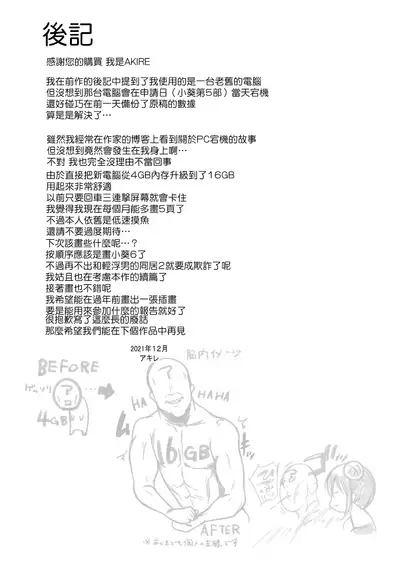 後記
感謝您的購買 我是AKIRE
我在前作的後記中提到了我使用的是一台老舊的電腦
但沒想到那台電腦會在申請日（小葵第5部）當天宕機
還好碰巧在前一天備份了原稿的數據
算是是解決了…
雖然我經常在作家的博客上看到關於PC宕機的故事
但沒想到竟然會發生在我身上啊…
不對 我也完全沒理由不當回事
由於直接把新電腦從4GB內存升級到了16GB
用起來非常舒適
以前只要回車三連擊屏幕就會卡住
我覺得我現在每個月能多畫5頁了
不過本人依舊是低速摸魚
還請不要過度期待…
下次該畫些什麼呢…？
按順序應該是畫小葵6了
不過再不出和輕浮男的同居2就要成欺詐了呢
我姑且也在考慮本作的續篇了
接著畫也不錯呢
我希望能在過年前畫出一張插畫
要是能用來參加什麼的報告就好了
很抱歉寫了這麼長的廢話
那麼希望我們能在下個作品中再見
2021年12月
アキレ
脳内イメージ
BEFORE
ゲッソリ
?
4GB
HA
HA
HAHA
?
16GB
AFTER
※あくまでも個人の主観です